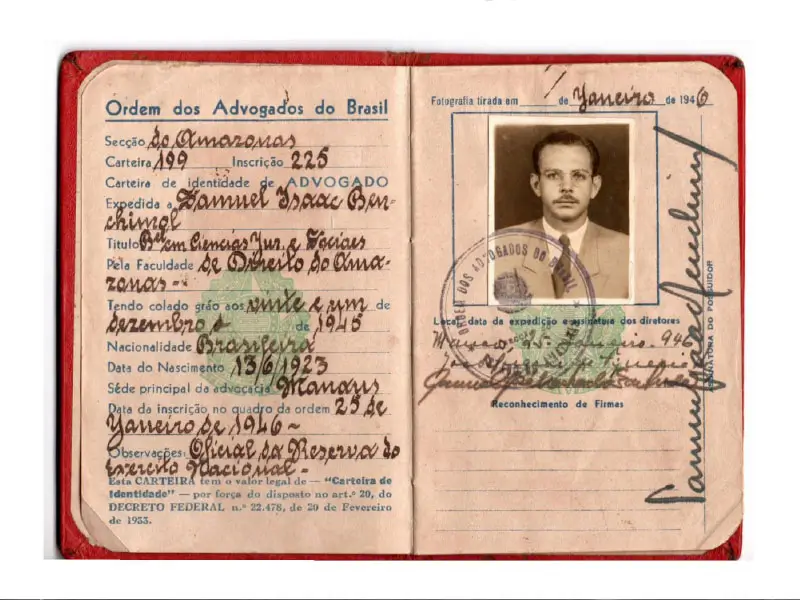 Ordem dos Advogados do Brasil
Secção do Amazonas
Carteira 199 Inscrição 225
Carteira de identidade de ADVOGADO
Expedida a Samuel Isaac Ben-
chimol
Titulo Bel em Ciencias Jur. e Sociaes
Pela Faculdade de Direito do Ama-
zonas --
Tendo colado gráo aos vinte e um de
dezembro de 1945
Nacionalidade Brasileira
Data do Nascimento 13/6/1923
Séde principal da advocacia Manaus
Data da inscrição no quadro da ordem 25 de
Janeiro de 1946 -
Observações: Oficial da Reserva do
Exercito Nacional -
Esta CARTEIRA tem o valor legal de — "Carteira de
Identidade" — por força do disposto no art.º 20, do
DECRETO FEDERAL n.º 22.478, de 20 de Fevereiro
de 1933.
Fotografia tirada em de Janeiro de 1946
ORDEM DOS ADVOGADOS DO BRASIL
Local, data da expedição e assinatura dos diretores
Manaos, 25 Janeiro 946
Reconhecimento de Firmas
ASSINATURA DO POSSUIDOR
Samuel Isaac Benchimol